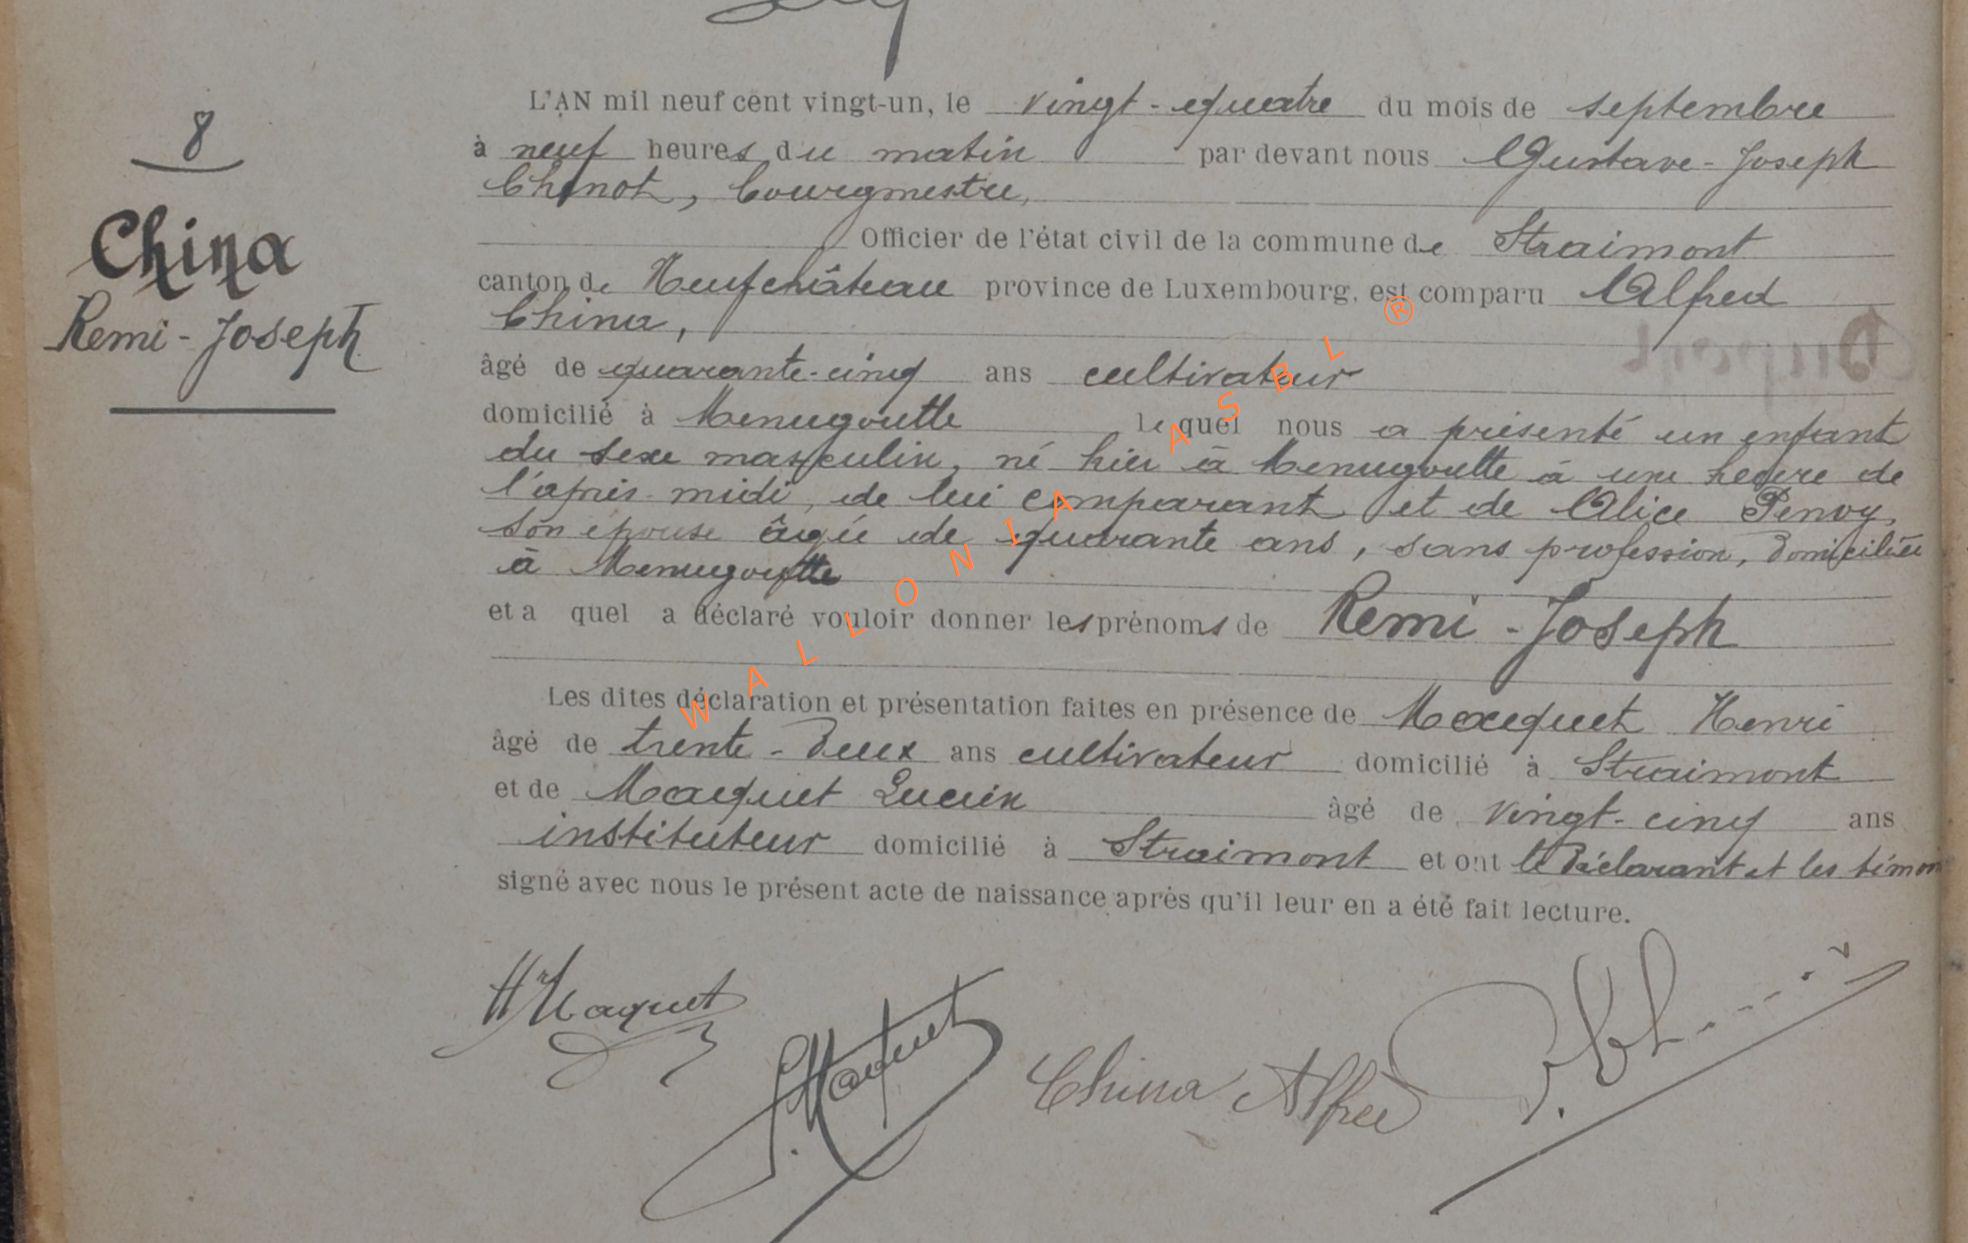 8
China
Remi-Joseph
L'AN mil neuf cent vingt-un, le vingt-quatre du mois de septembre
à neuf heures du matin par devant nous Gustave-Joseph
Chinot, bourgmestre,
Officier de l'état civil de la commune de Straimont
canton de Neufchâteau province de Luxembourg, est comparu Alfred
China,
âgé de quarante-cinq ans cultivateur
domicilié à Menugoutte lequel nous a présenté un enfant
du sexe masculin, né hier à Menugoutte à une heure de
l'après-midi, de lui comparant et de Alice Penoy,
son épouse âgée de quarante ans, sans profession, domiciliée
à Menugoutte
et a quel a déclaré vouloir donner les prénoms de Remi-Joseph
Les dites déclaration et présentation faites en présence de Maquet Henri
âgé de trente-deux ans cultivateur domicilié à Straimont
et de Maquet Lucien âgé de vingt-cinq ans
instituteur domicilié à Straimont et ont le déclarant et les témoin
signé avec nous le présent acte de naissance après qu'il leur en a été fait lecture.
H Maquet
L. Maquet
China Alfred
WALLONIA ASBL ®
Dupont